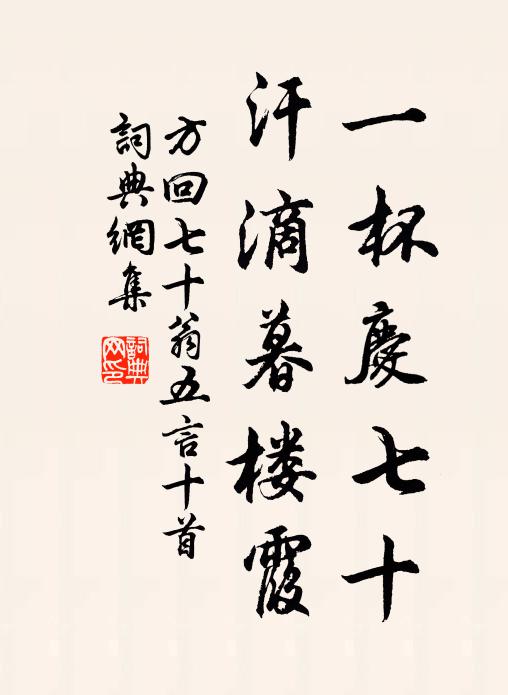 一杯慶七十
汗滴暮楼霞
方回七十翁五言十首
詞典網集
詞典网印